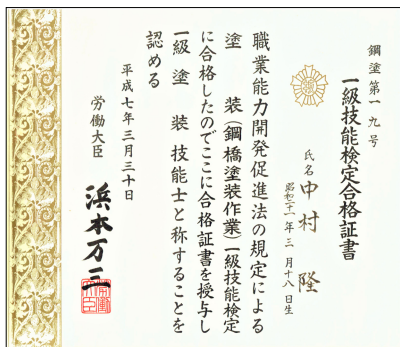 鋼塗第一九号
一級技能検定合格証書
氏名 中村 隆
昭和二十一年三月十八日生
職業能力開発促進法の規定による
塗 装(鋼橋塗装作業)一級技能検定
に合格したのでここに合格証書を授与し
一級 塗 装 技能士と称することを
認める
平成七年三月三十日
労働大臣 浜本万三